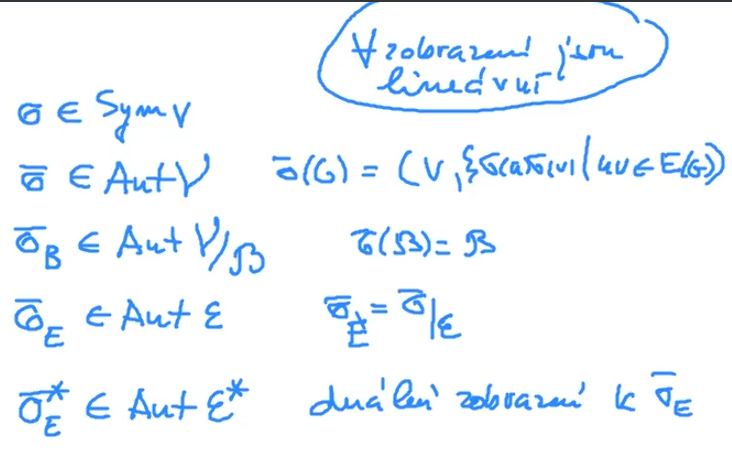 ∀ zobrazení jsou
lineární
σ ∈ Sym V
σ̄ ∈ Aut 𝒱 σ̄(G) = (V, {σ(u)σ(v) | uv ∈ E(G)})
σ̄_B ∈ Aut 𝒱/ℬ σ̄(ℬ) = ℬ
σ̄_E ∈ Aut ℰ σ̄_E = σ̄|ℰ
σ̄*_E ∈ Aut ℰ* duální zobrazení k σ̄_E